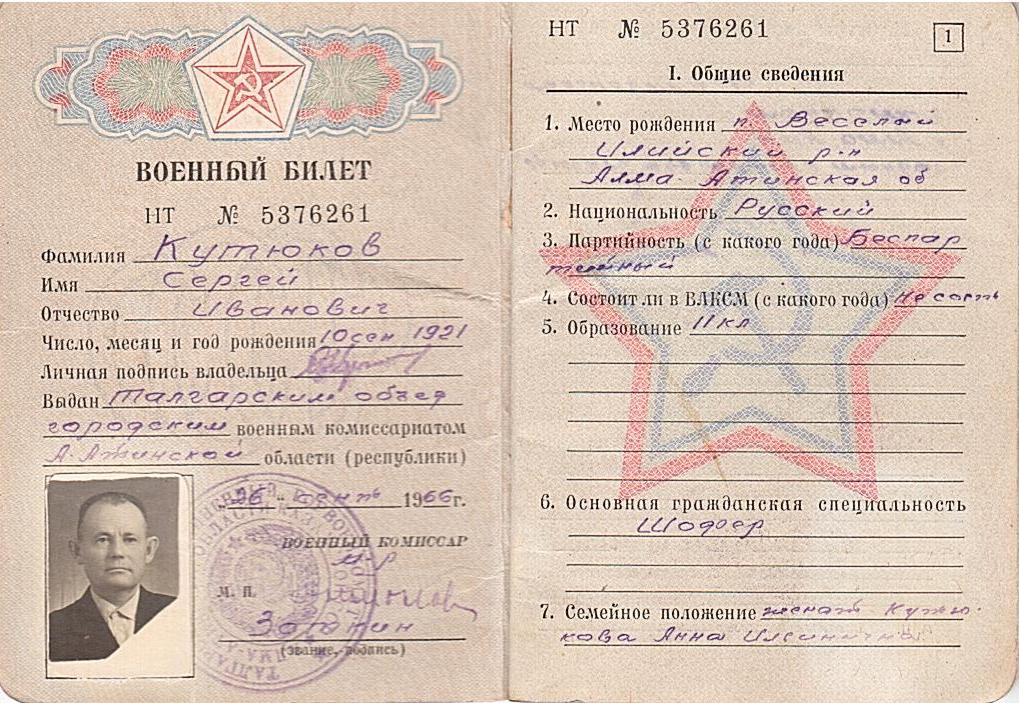 ВОЕННЫЙ БИЛЕТ
НТ № 5376261
Фамилия Кутюков
Имя Сергей
Отчество Иванович
Число, месяц и год рождения 10 сен 1921
Личная подпись владельца
Выдан Талгарским объед
городским военным комиссариатом
А-Атинской области (республики)
"26" сент 1966г.
ВОЕННЫЙ КОМИССАР
м-р
М. П.
Зоткин
(звание, подпись)
НТ № 5376261
1
I. Общие сведения
1. Место рождения п. Веселый
Илийский р-н
Алма-Атинская об
2. Национальность Русский
3. Партийность (с какого года) Беспар
тийный
4. Состоит ли в ВЛКСМ (с какого года) не сост
5. Образование 11 кл
6. Основная гражданская специальность
Шофер
7. Семейное положение женат Кутю-
кова Анна